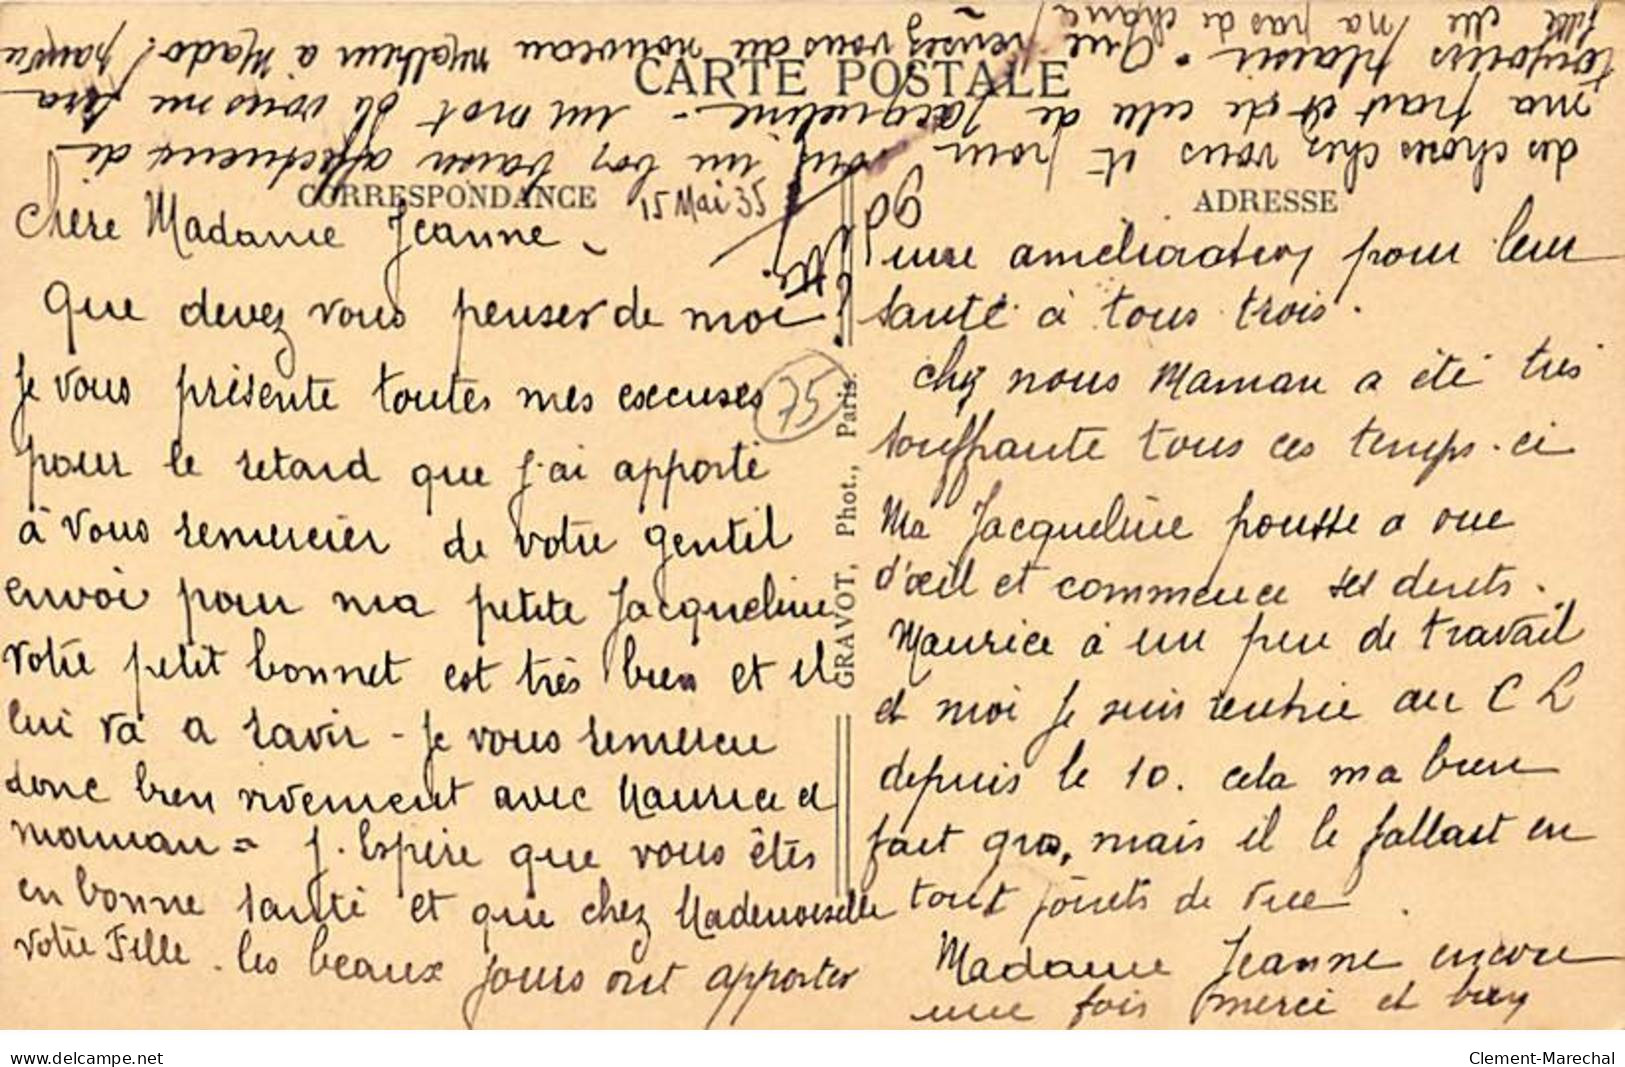 CARTE POSTALE
CORRESPONDANCE
ADRESSE
15 Mai 35
Chère Madame Jeanne -
Que devez vous penser de moi !
Je vous présente toutes mes excuses
pour le retard que j'ai apporté
à vous remercier de votre gentil
envoi pour ma petite Jacqueline
Votre petit bonnet est très bien et il
lui va a ravir - Je vous remercie
donc bien vivement avec Maurice et
maman = J. Espère que vous êtes
en bonne santé et que chez Mademoiselle
votre Fille . les beaux jours ont apporter
75
GRAVOT, Phot., Paris.
une amélioration pour leur
santé à tous trois .
Chez nous Maman a été très
souffrante tous ces temps-ci
Ma Jacqueline pousse a vue
d'œil et commence ses dents .
Maurice à un peu de travail
et moi je suis rentrée au C L
depuis le 10. cela ma bien
fait gros, mais il le fallait en
tout points de vue .
Madame Jeanne encore
une fois merci et bien
des choses chez vous et pour vous un bon baiser affectueux de
ma part et de celui de Jacqueline - un mot de vous me fera
toujours plaisir . Que pensez vous du nouveau malheur à Mado ! pauvre
fille elle n'a pas de chance
www.delcampe.net
Clement-Marechal